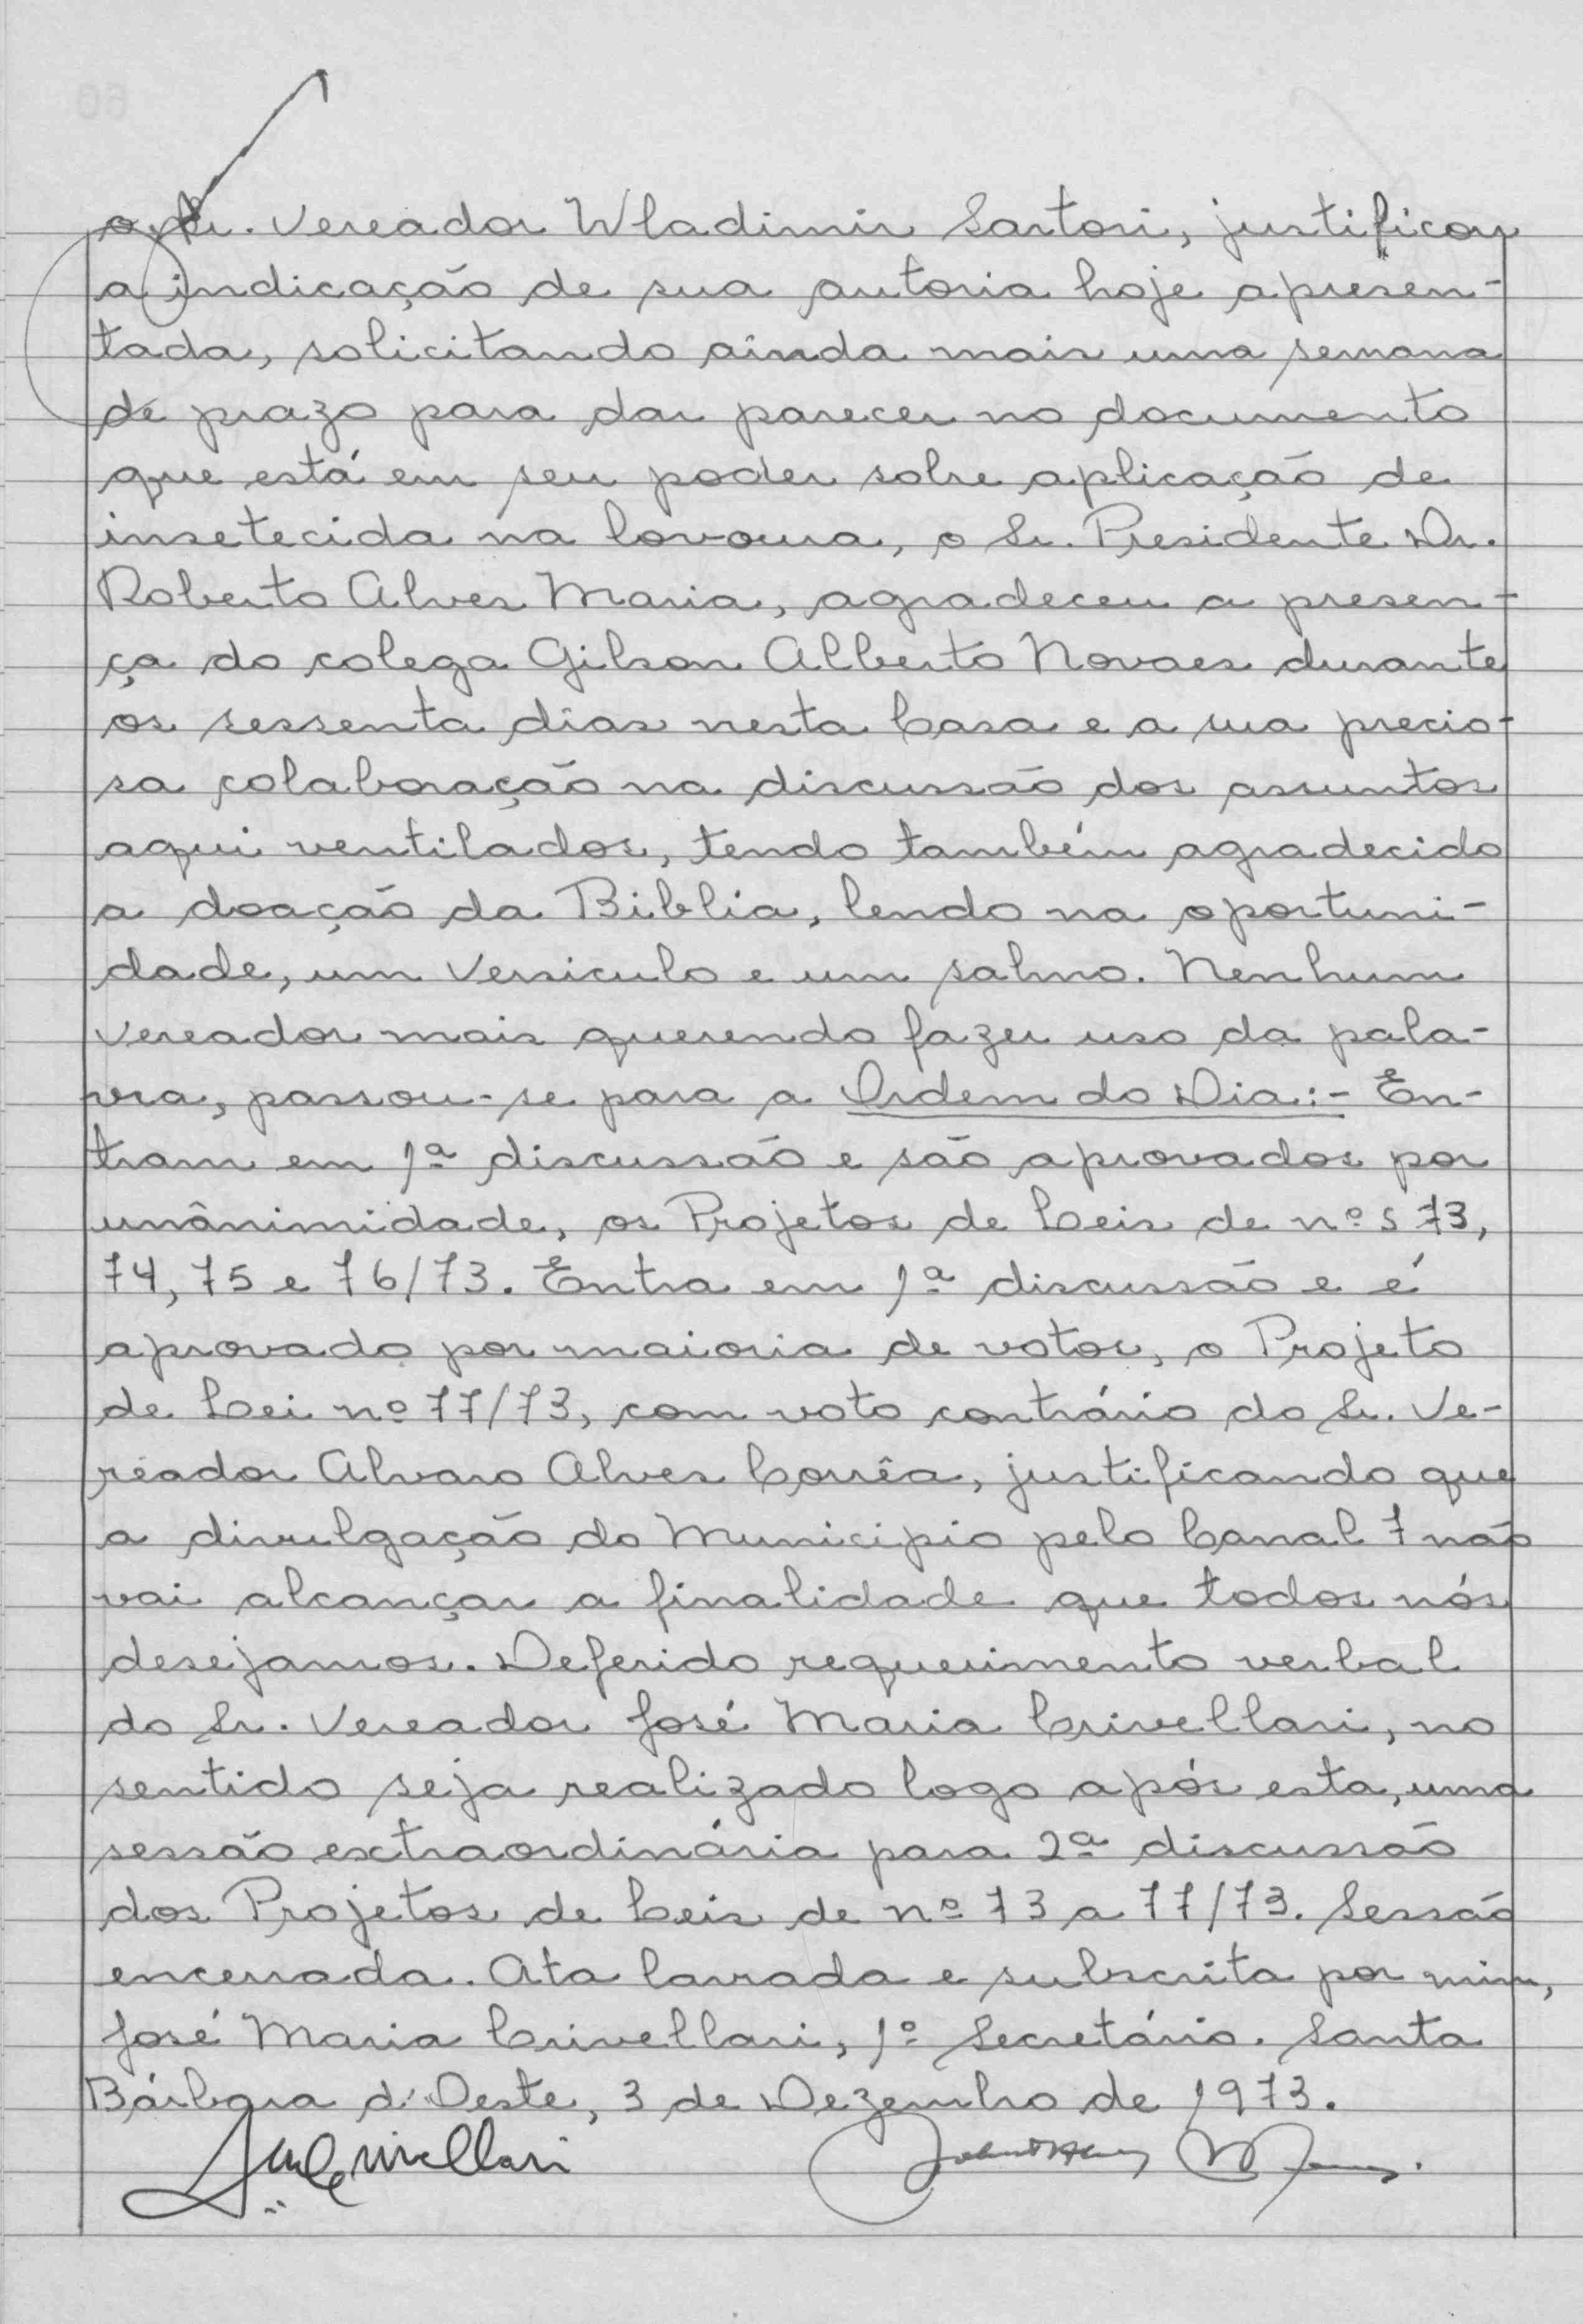 o Sr. Vereador Wladimir Sartori, justificou
a indicação de sua autoria hoje apresen-
tada, solicitando ainda mais uma semana
de prazo para dar parecer no documento
que está em seu poder sobre aplicação de
insetecida na lavoura, o Sr. Presidente Dr.
Roberto Alves Maria, agradeceu a presen-
ça do colega Gilson Alberto Novaes durante
os sessenta dias nesta Casa e a sua precio-
sa colaboração na discussão dos assuntos
aqui ventilados, tendo também agradecido
a doação da Biblia, lendo na oportuni-
dade, um versiculo e um salmo. Nenhum
Vereador mais querendo fazer uso da pala-
vra, passou-se para a Ordem do Dia:- En-
tram em 1ª discussão e são aprovados por
unânimidade, os Projetos de Leis de nºs 73,
74, 75 e 76/73. Entra em 1ª discussão e é
aprovado por maioria de votos, o Projeto
de Lei nº 77/73, com voto contrário do Sr. Ve-
reador Alvaro Alves Corrêa, justificando que
a divulgação do Municipio pelo Canal 7 não
vai alcançar a finalidade que todos nós
desejamos. Deferido requerimento verbal
do Sr. Vereador José Maria Crivellari, no
sentido seja realizado logo após esta, uma
sessão extraordinária para 2ª discussão
dos Projetos de Leis de nº 73 a 77/73. Sessão
encerrada. Ata lavrada e subscrita por mim,
José Maria Crivellari, 1º Secretário. Santa
Bárbara d'Oeste, 3 de Dezembro de 1973.